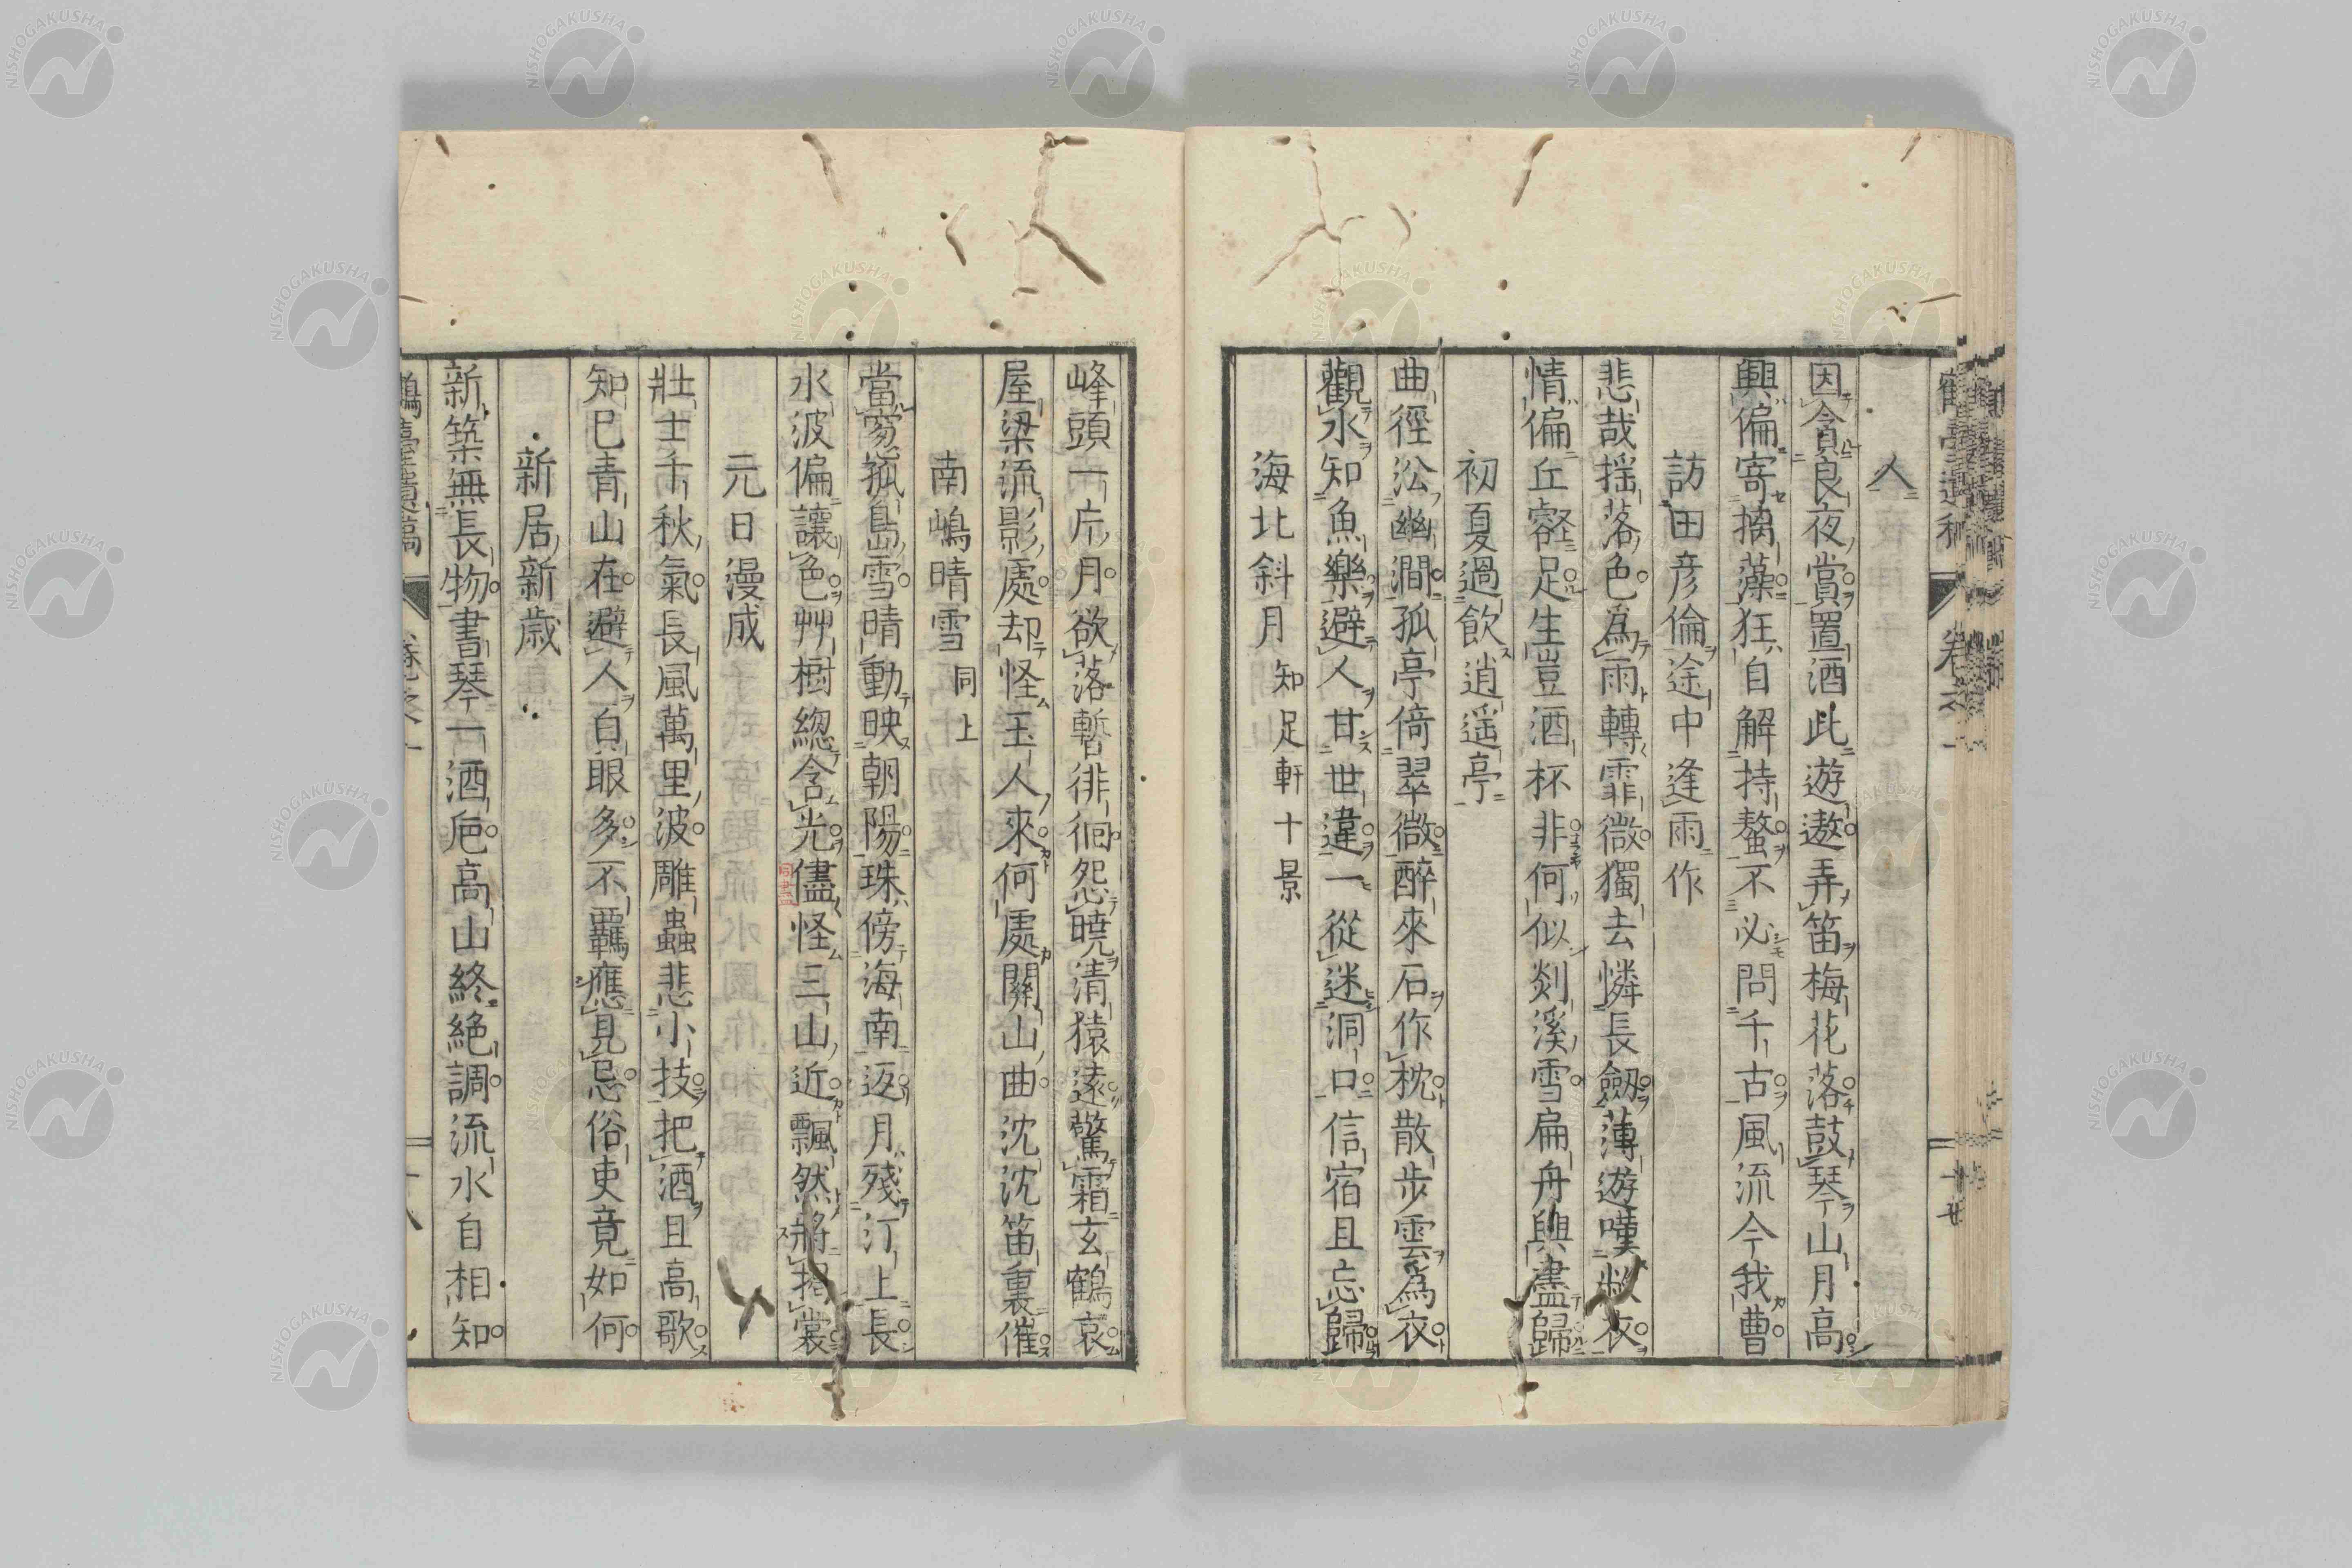 人
因貪良夜賞置酒此遊遨弄笛梅花落鼓琴山月高
興偏寄摛藻狂自解持螯不必問千古風流今我曹
訪田彦倫途中逢雨作
悲哉揺落色爲雨轉霏微獨去憐長劔薄遊嘆敝衣
情偏丘壑足生豈酒杯非何似剡溪雪扁舟興盡歸
初夏過飲逍遥亭
曲徑㳂幽澗孤亭倚翠微醉來石作枕散步雲爲衣
觀水知魚樂避人甘世違一從迷洞口信宿且忘歸
海北斜月 知足軒十景
峰頭一片月欲落暫徘徊怨曉清猿遠驚霜玄鶴哀
屋梁流影處却怪玉人來何處關山曲沈沈笛裏催
南嶋晴雪 同上
當窓孤島雪晴動映朝陽珠傍海南返月殘汀上長
水波偏讓色艸樹總含光儘怪三山近飄然將褰裳
同盡
元日漫成
壯士千秋氣長風萬里波雕蟲悲小技把酒且高歌
知已青山在避人白眼多不羈應見忌俗吏竟如何
新居新歳
新築無長物書琴一酒巵高山終絶調流水自相知
NISHOGAKUSHA